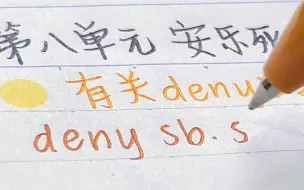 第八单元 安乐死
有关deny
deny sb. s